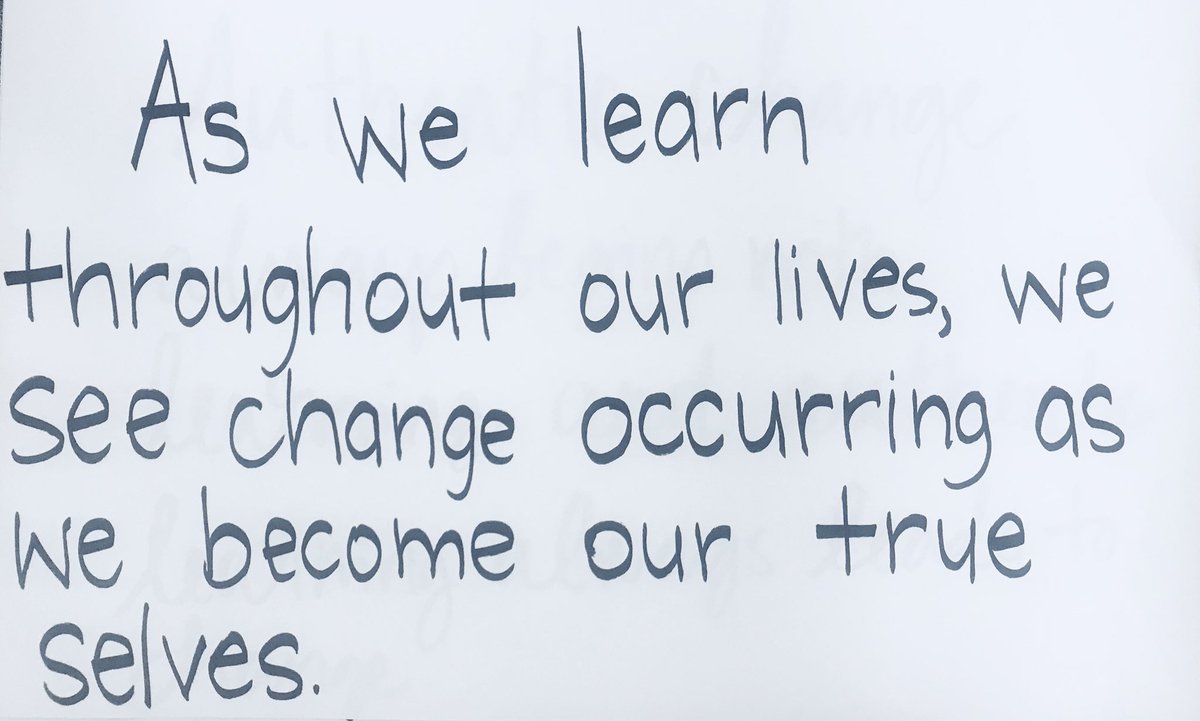 As we learn
throughout our lives, we
see change occurring as
we become our true
selves.